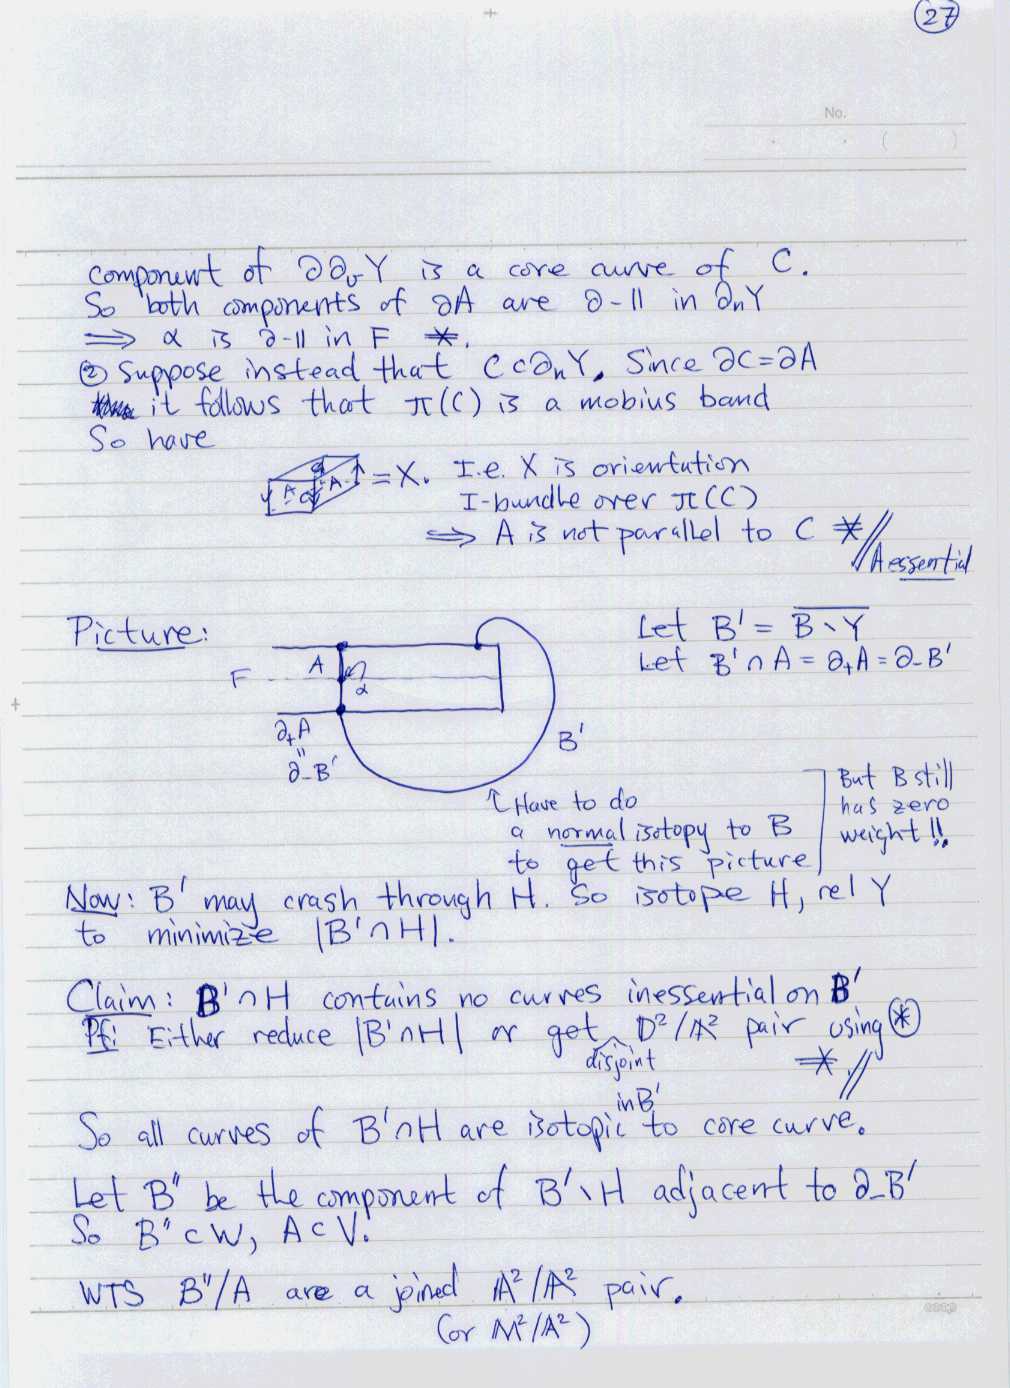 27
No.
component of ∂∂ᵥY is a core curve of C.
So both components of ∂A are ∂-11 in ∂ₕY
⟹ α is ∂-11 in F ※.
② Suppose instead that C⊂∂ₕY. Since ∂C=∂A
it follows that π(C) is a mobius band
So have
A A = X. I.e. X is orientation
I-bundle over π(C)
⟹ A is not parallel to C ※ //
A essential
Picture:
Let B' = B∖Y
Let B'∩A = ∂₊A = ∂₋B'
F
A
α
∂₊A
"
∂₋B'
B'
↑ Have to do
a normal isotopy to B
to get this picture
But B still
has zero
weight!!
Now: B' may crash through H. So isotope H, rel Y
to minimize |B'∩H|.
Claim: B'∩H contains no curves inessential on B'
Pf: Either reduce |B'∩H| or get disjoint D²/A² pair using ⊛
in B' ※ //
So all curves of B'∩H are isotopic to core curve.
Let B" be the component of B'∖H adjacent to ∂₋B'
So B" ⊂ W, A ⊂ V.
WTS B"/A are a joined A²/A² pair.
(or M²/A²)